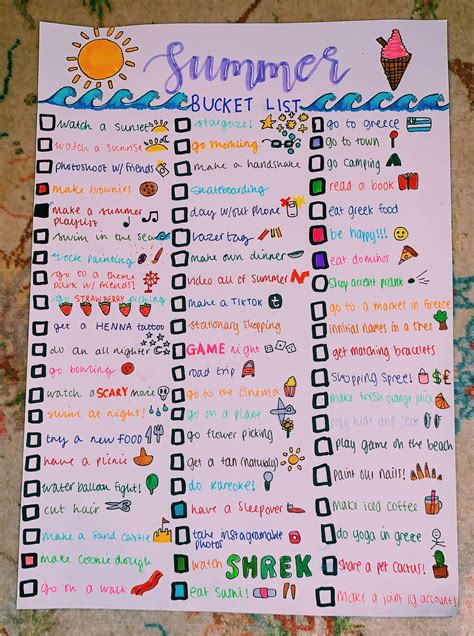 Summer
BUCKET LIST
watch a sunset
watch a sunrise
photoshoot w/ friends
make brownies
make a summer
playlist
swim in the sea
rock painting
go to a theme
park w/ friends!
go STRAWBERRY picking
get a HENNA tattoo
do an all nighter
go bowling
watch a SCARY movie
swim at night!
try a new FOOD
have a picnic
water balloon fight!
cut hair
make a sand castle
make cookie dough
go on a walk
stargaze!
go snorkling
make a handshake
skateboarding
day w/out phone
Lazer tag
make own dinner
video all of summer
make a TIKTOK
stationary shopping
GAME night
road trip
go to the cinema
go on a plane
go flower picking
get a tan (naturally)
do kareoke!
have a sleepover
take instagramable
photos
watch SHREK
eat sushi!
go to greece
go to town
go camping
read a book
eat greek food
be happy!!!
eat dominos
Shop accent prank
go to a market in Greece
innitial names in a tree
get matching bracelets
Shopping Spree!
make fresh orange juice
play hide and seek
play game on the beach
paint our nails!
make iced coffee
do yoga in greece
share a pet cactus!
make a joint ig account!